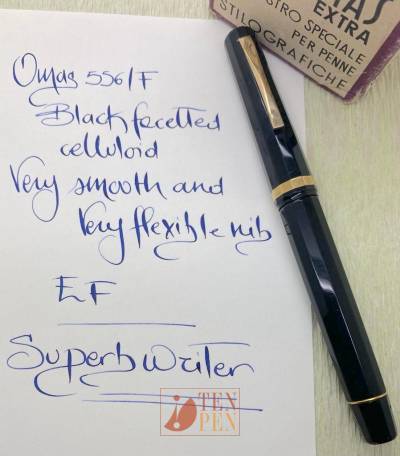 AS
EXTRA
STRO SPECIALE
PER PENNE
STILOGRAFICHE
Omas 556/F
Black facetted
celluloid
Very smooth and
Very flexible nib
EF
Superb writer
TEN
PEN